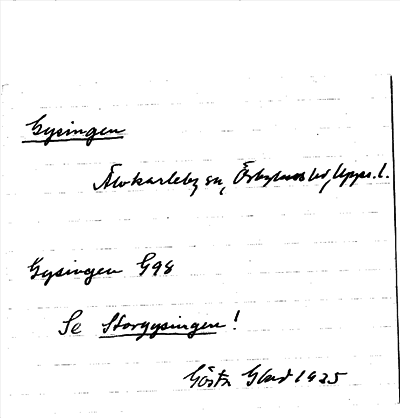 Gysingen
Älvkarleby sn, Örbyhus hd, Upps. l.
Gysingen G98
Se Storgysingen!
Gösta Glad 1935